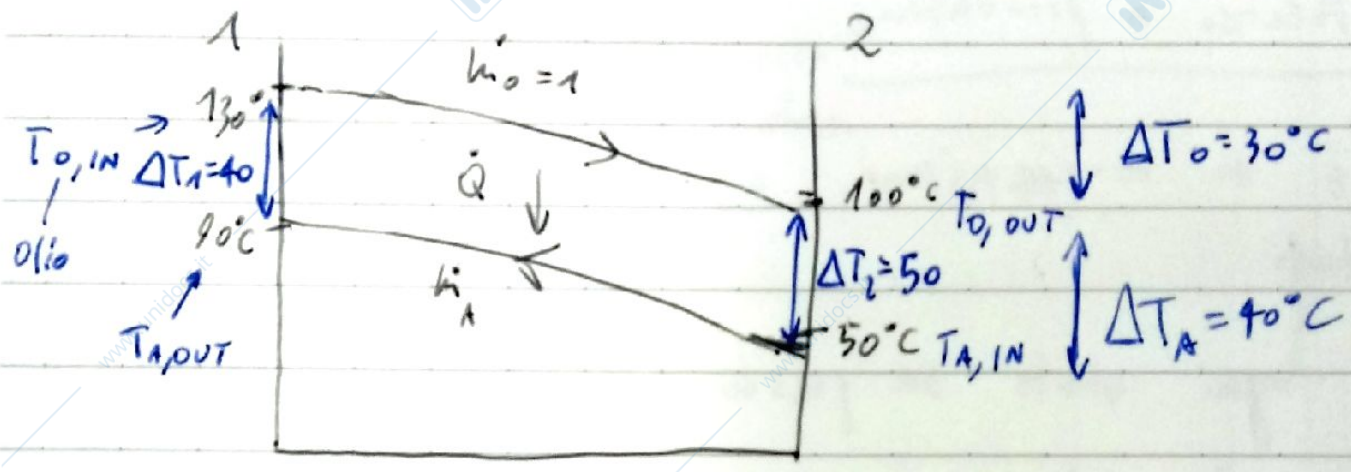 1
2
ṁo = 1
130°
To, IN
ΔT1=40
olio
Q̇
90°C
ṁA
TA,OUT
100°C To, OUT
ΔT2=50
50°C TA, IN
ΔTo = 30°C
ΔTA = 40°C